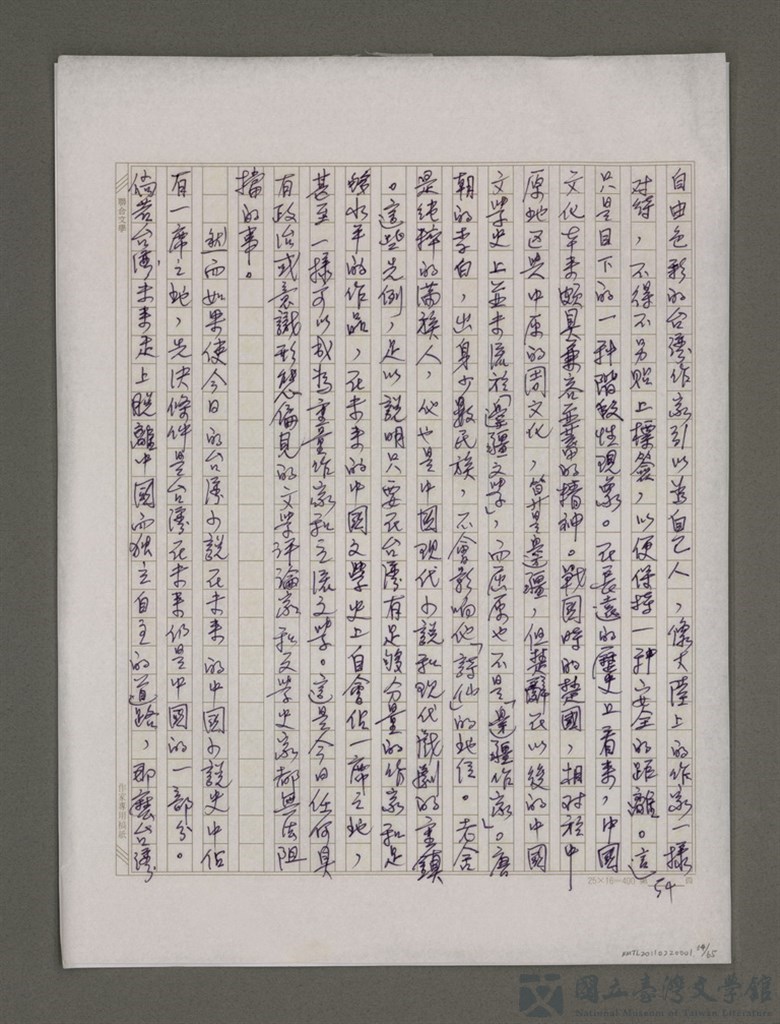 自由色彩的台灣作家引以為自己人，像大陸上的作家一樣
对待，不得不另貼上標簽，以便保持一种安全的距離。這
只是目下的一种階段性現象。在長遠的歷史上看来，中國
文化本来頗具兼容並蓄的精神。戰國時的楚國，相对於中
原地区與中原的周文化，算是邊疆，但楚辭在以後的中國
文學史上並未流於「邊疆文學」，而屈原也不是「邊疆作家」。唐
朝的李白，出身少數民族，不會影响他「詩仙」的地位。老舍
是純粹的滿族人，他也是中國現代小說和現代戲劇的重鎮
。這些先例，足以說明只要在台灣有足够分量的作家和足
够水平的作品，在未来的中國文學史上自會佔一席之地，
甚至一樣可以成為重量作家和主流文學。這是今日任何具
有政治或意識形態偏見的文学评論家和文學史家都無法阻
擋的事！
然而如果使今日的台灣小說在未来的中國小說史中佔
有一席之地，先决條件是台灣在未来仍是中國的一部分。
倘若台灣未来走上脫離中國而独立自主的道路，那麼台灣
聯合文學
作家專用稿紙
25×16=400
54
NMTL20110220001
54/65
國立臺灣文學館
National Museum of Taiwan Literature